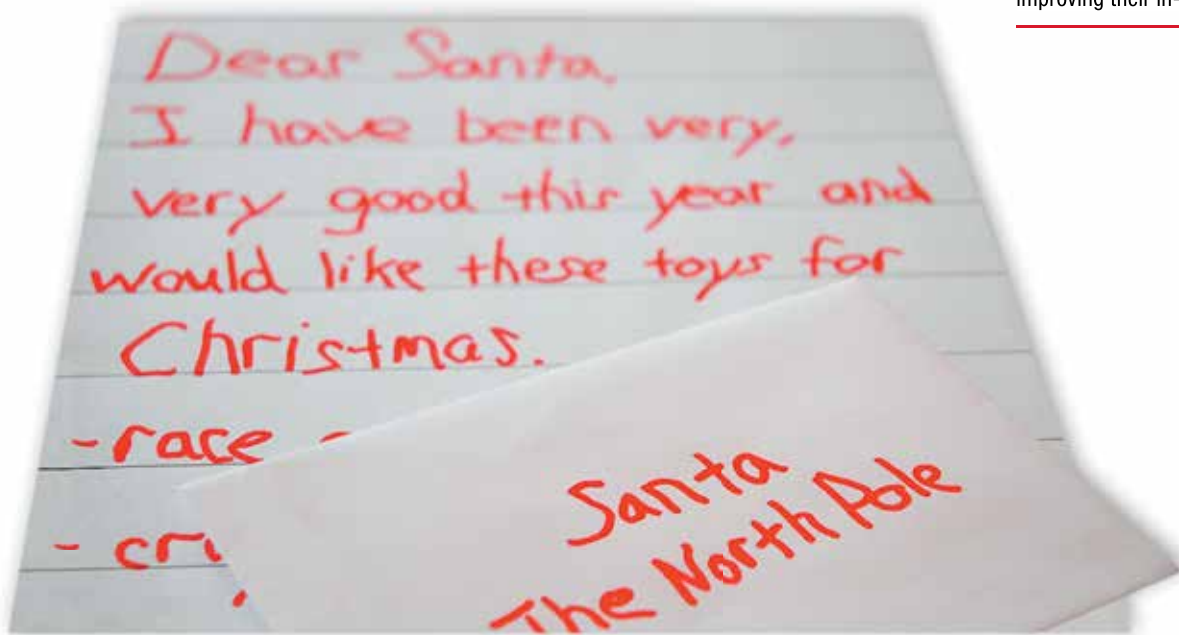 improving their in-
Dear Santa,
I have been very,
very good this year and
would like these toys for
Christmas.
-race
Santa
The North Pole